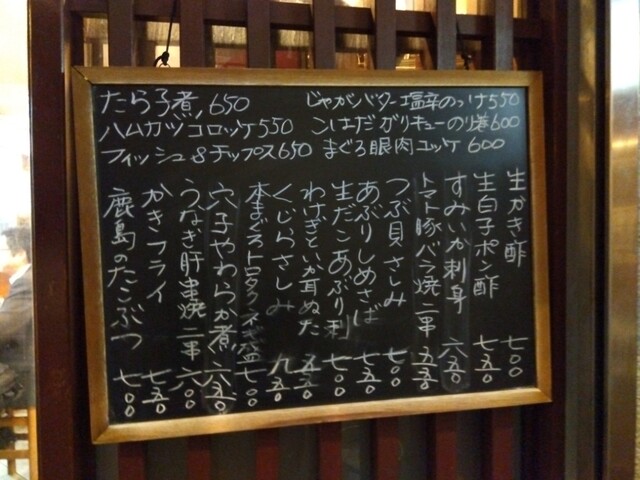 たら子煮 650
じゃがバター塩辛のっけ550
ハムカツコロッケ550
こはだガリキューのり巻600
フィッシュ&チップス650
まぐろ眼肉ユッケ 600
生かき酢 七〇〇
生白子ポン酢 七五〇
すみいか刺身 六五〇
トマト豚バラ焼二串 五五〇
つぶ貝さしみ 七〇〇
あぶりしめさば 七五〇
生だこあぶり刺 七〇〇
わけぎといか耳ぬた 五五〇
くじらさしみ 九五〇
本まぐろトロタクネギ盛 七〇〇
穴子やわらか煮 六五〇
うなぎ肝串焼二串 六〇〇
かきフライ 七五〇
鹿島のたこぶつ 七〇〇